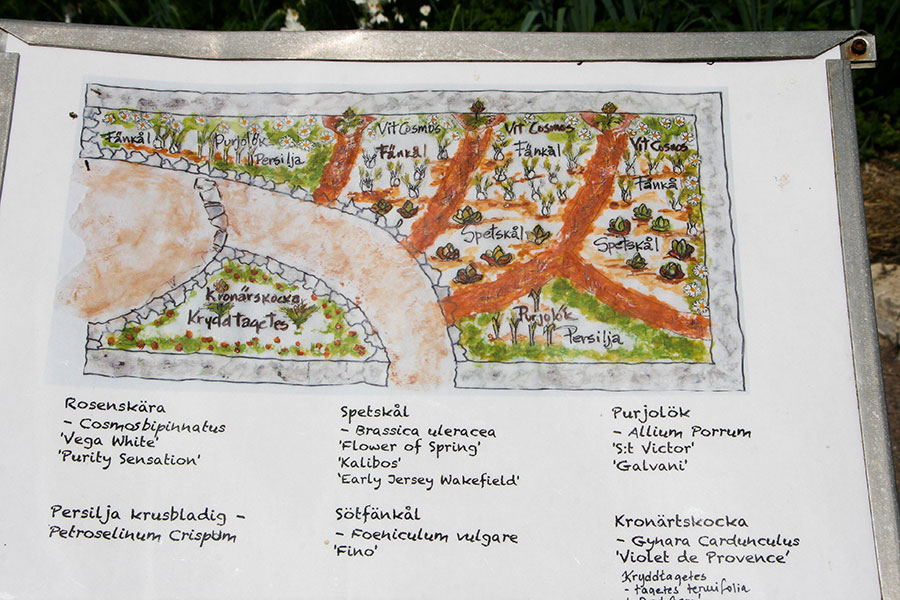 Fänkål
Purjolök
Persilja
Vit Cosmos
Fänkål
Vit Cosmos
Fänkål
Vit Cosmos
Fänkål
Spetskål
Spetskål
Kronärskocka
Kryddtagetes
Purjolök
Persilja
Rosenskära
- Cosmosbipinnatus
'Vega White'
'Purity Sensation'
Persilja krusbladig -
Petroselinum Crispum
Spetskål
- Brassica uleracea
'Flower of Spring'
'Kalibos'
'Early Jersey Wakefield'
Sötfänkål
- Foeniculum vulgare
'Fino'
Purjolök
- Allium Porrum
'S:t Victor'
'Galvani'
Kronärtskocka
- Gynara Cardunculus
'Violet de Provence'
Kryddtagetes
- tagetes tenuifolia